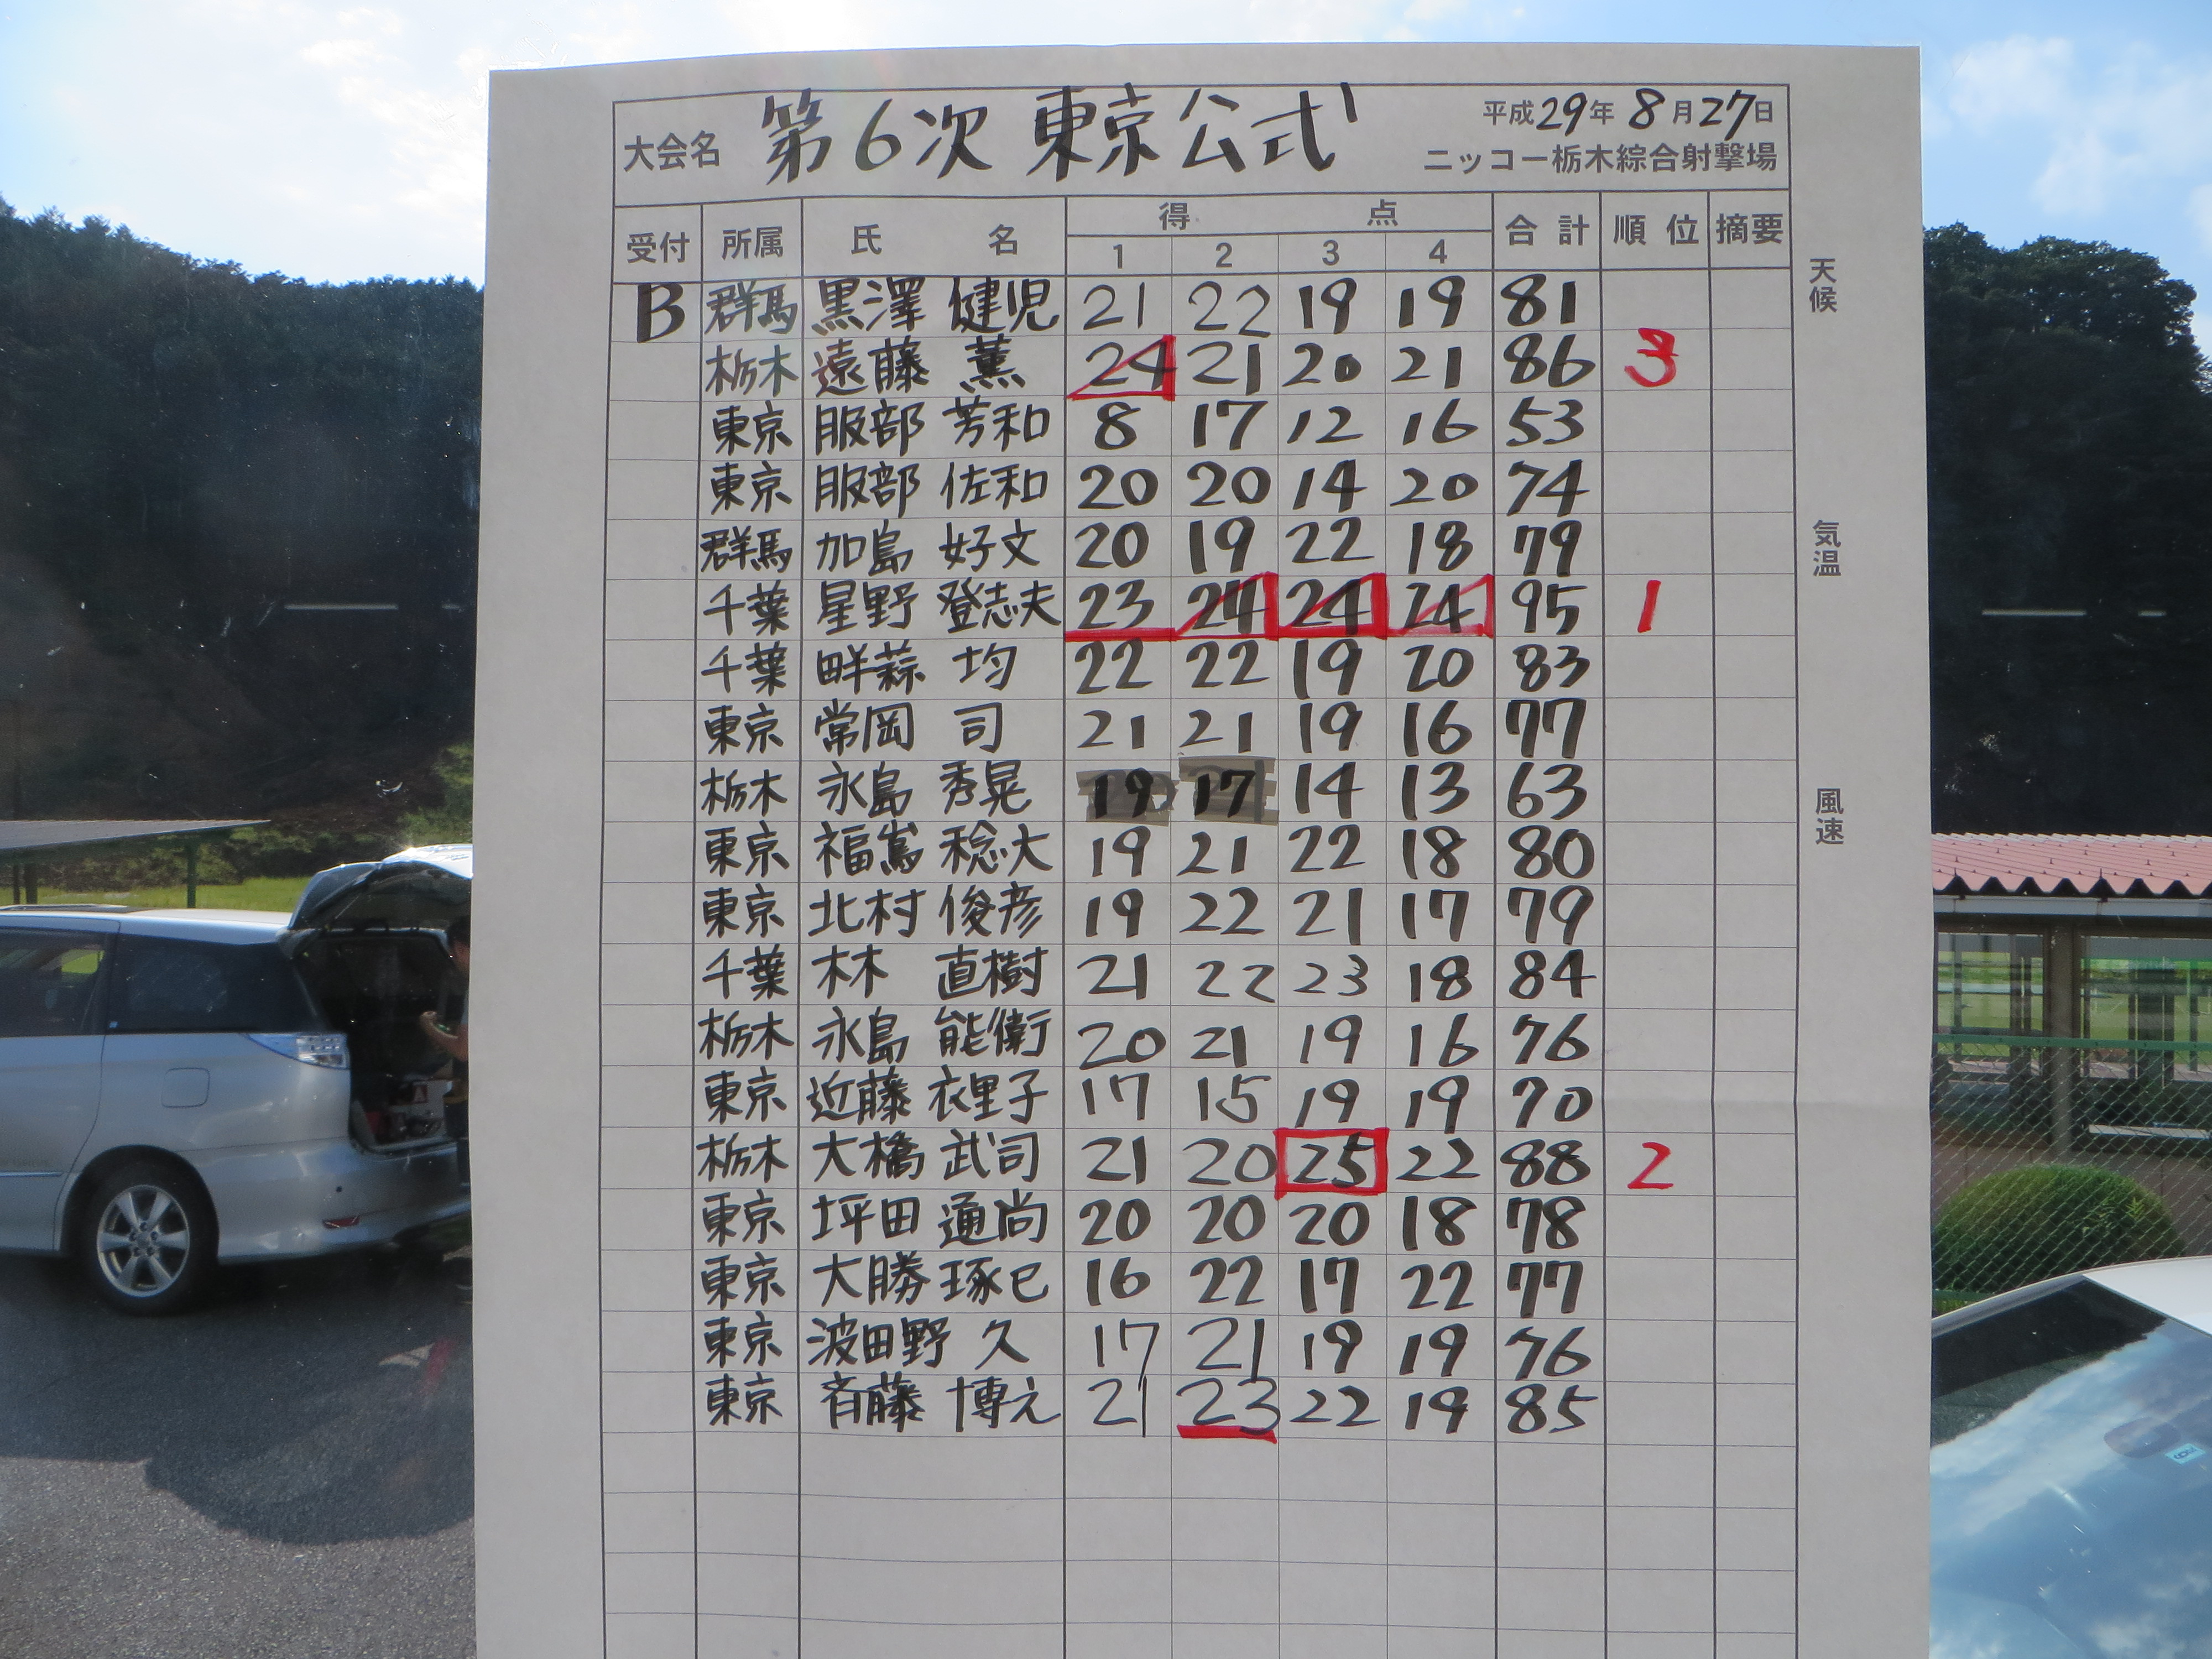 大会名 第6次 東京公式 平成29年8月27日
ニッコー栃木綜合射撃場
受付 所属 氏名 得点 合計 順位 摘要
1 2 3 4
B 群馬 黒澤 健児 21 22 19 19 81
栃木 遠藤 薫 24 21 20 21 86 3
東京 服部 芳和 8 17 12 16 53
東京 服部 佐和 20 20 14 20 74
群馬 加島 好文 20 19 22 18 79
千葉 星野 登志夫 23 24 24 24 95 1
千葉 畔蒜 均 22 22 19 20 83
東京 常岡 司 21 21 19 16 77
栃木 永島 秀晃 19 17 14 13 63
東京 福嶌 稔大 19 21 22 18 80
東京 北村 俊彦 19 22 21 17 79
千葉 林 直樹 21 22 23 18 84
栃木 永島 能衛 20 21 19 16 76
東京 近藤 衣里子 17 15 19 19 70
栃木 大橋 武司 21 20 25 22 88 2
東京 坪田 通尚 20 20 20 18 78
東京 大勝 琢巳 16 22 17 22 77
東京 波田野 久 17 21 19 19 76
東京 斉藤 博之 21 23 22 19 85
天候
気温
風速